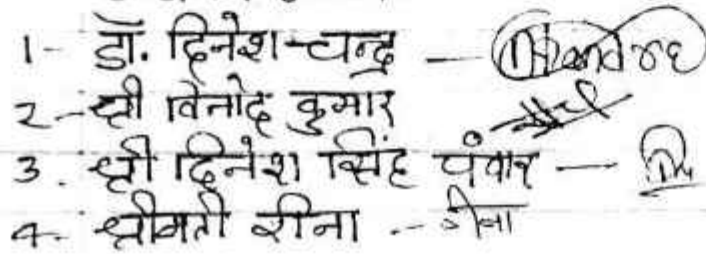 1- डॉ. दिनेश-चन्द्र —
2- श्री विनोद कुमार
3. श्री दिनेश सिंह पंवार —
4- श्रीमती रीना -- रीना